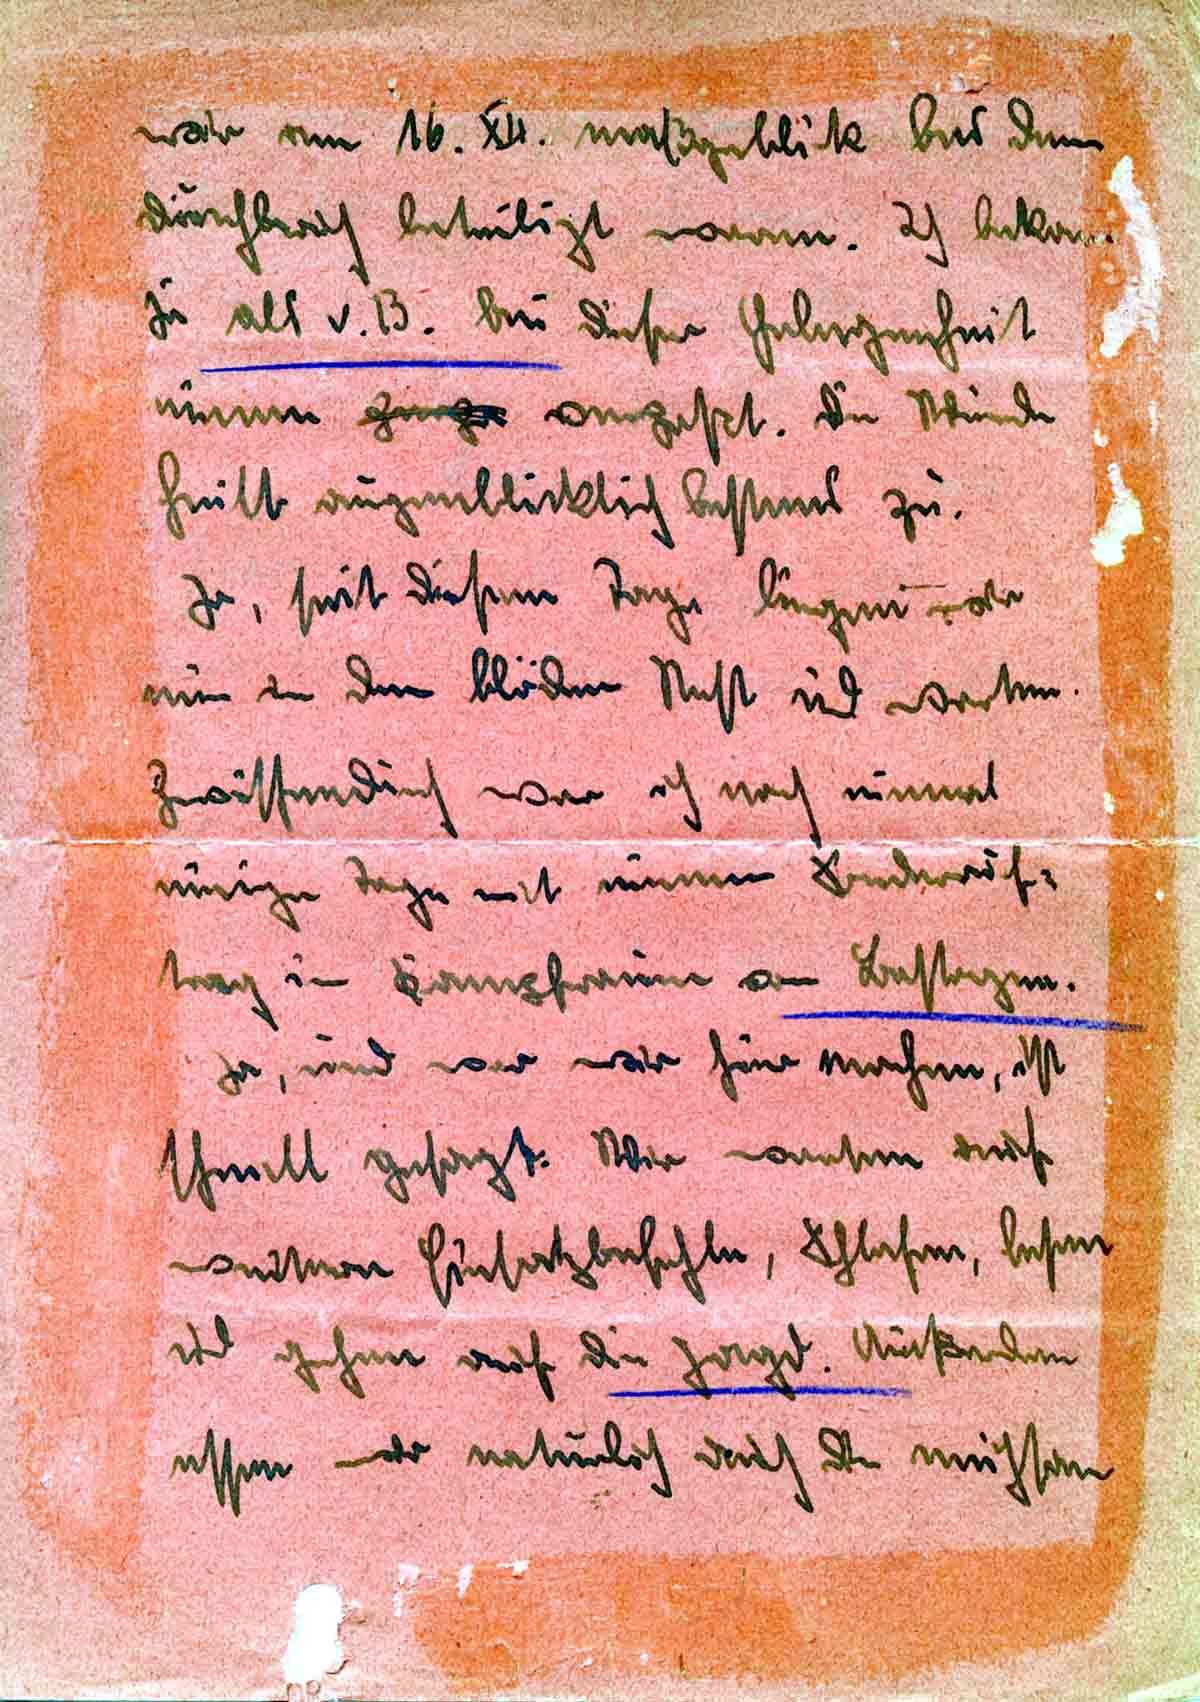 wir am 16. XII. maßgeblich bei dem
Durchbruch beteiligt waren. Ich bekam
ja als v. B. bei dieser Gelegenheit
einen angesetzt. Die Wunde
heilt augenblicklich bestens zu.
Ja, seit diesem Tage liegen wir
nun in dem blöden Nest und warten.
Zwischendurch war ich noch einmal
einige Tage mit einem Sonderauf=
trag im Kampfraum von Bastogne.
Ja, und was wir hier machen, ist
schnell gesagt: Wir warten auf
weitere Einsatzbefehle, schlafen, lesen
und gehen auf die Jagd. Außerdem
essen wir natürlich auch die meisten